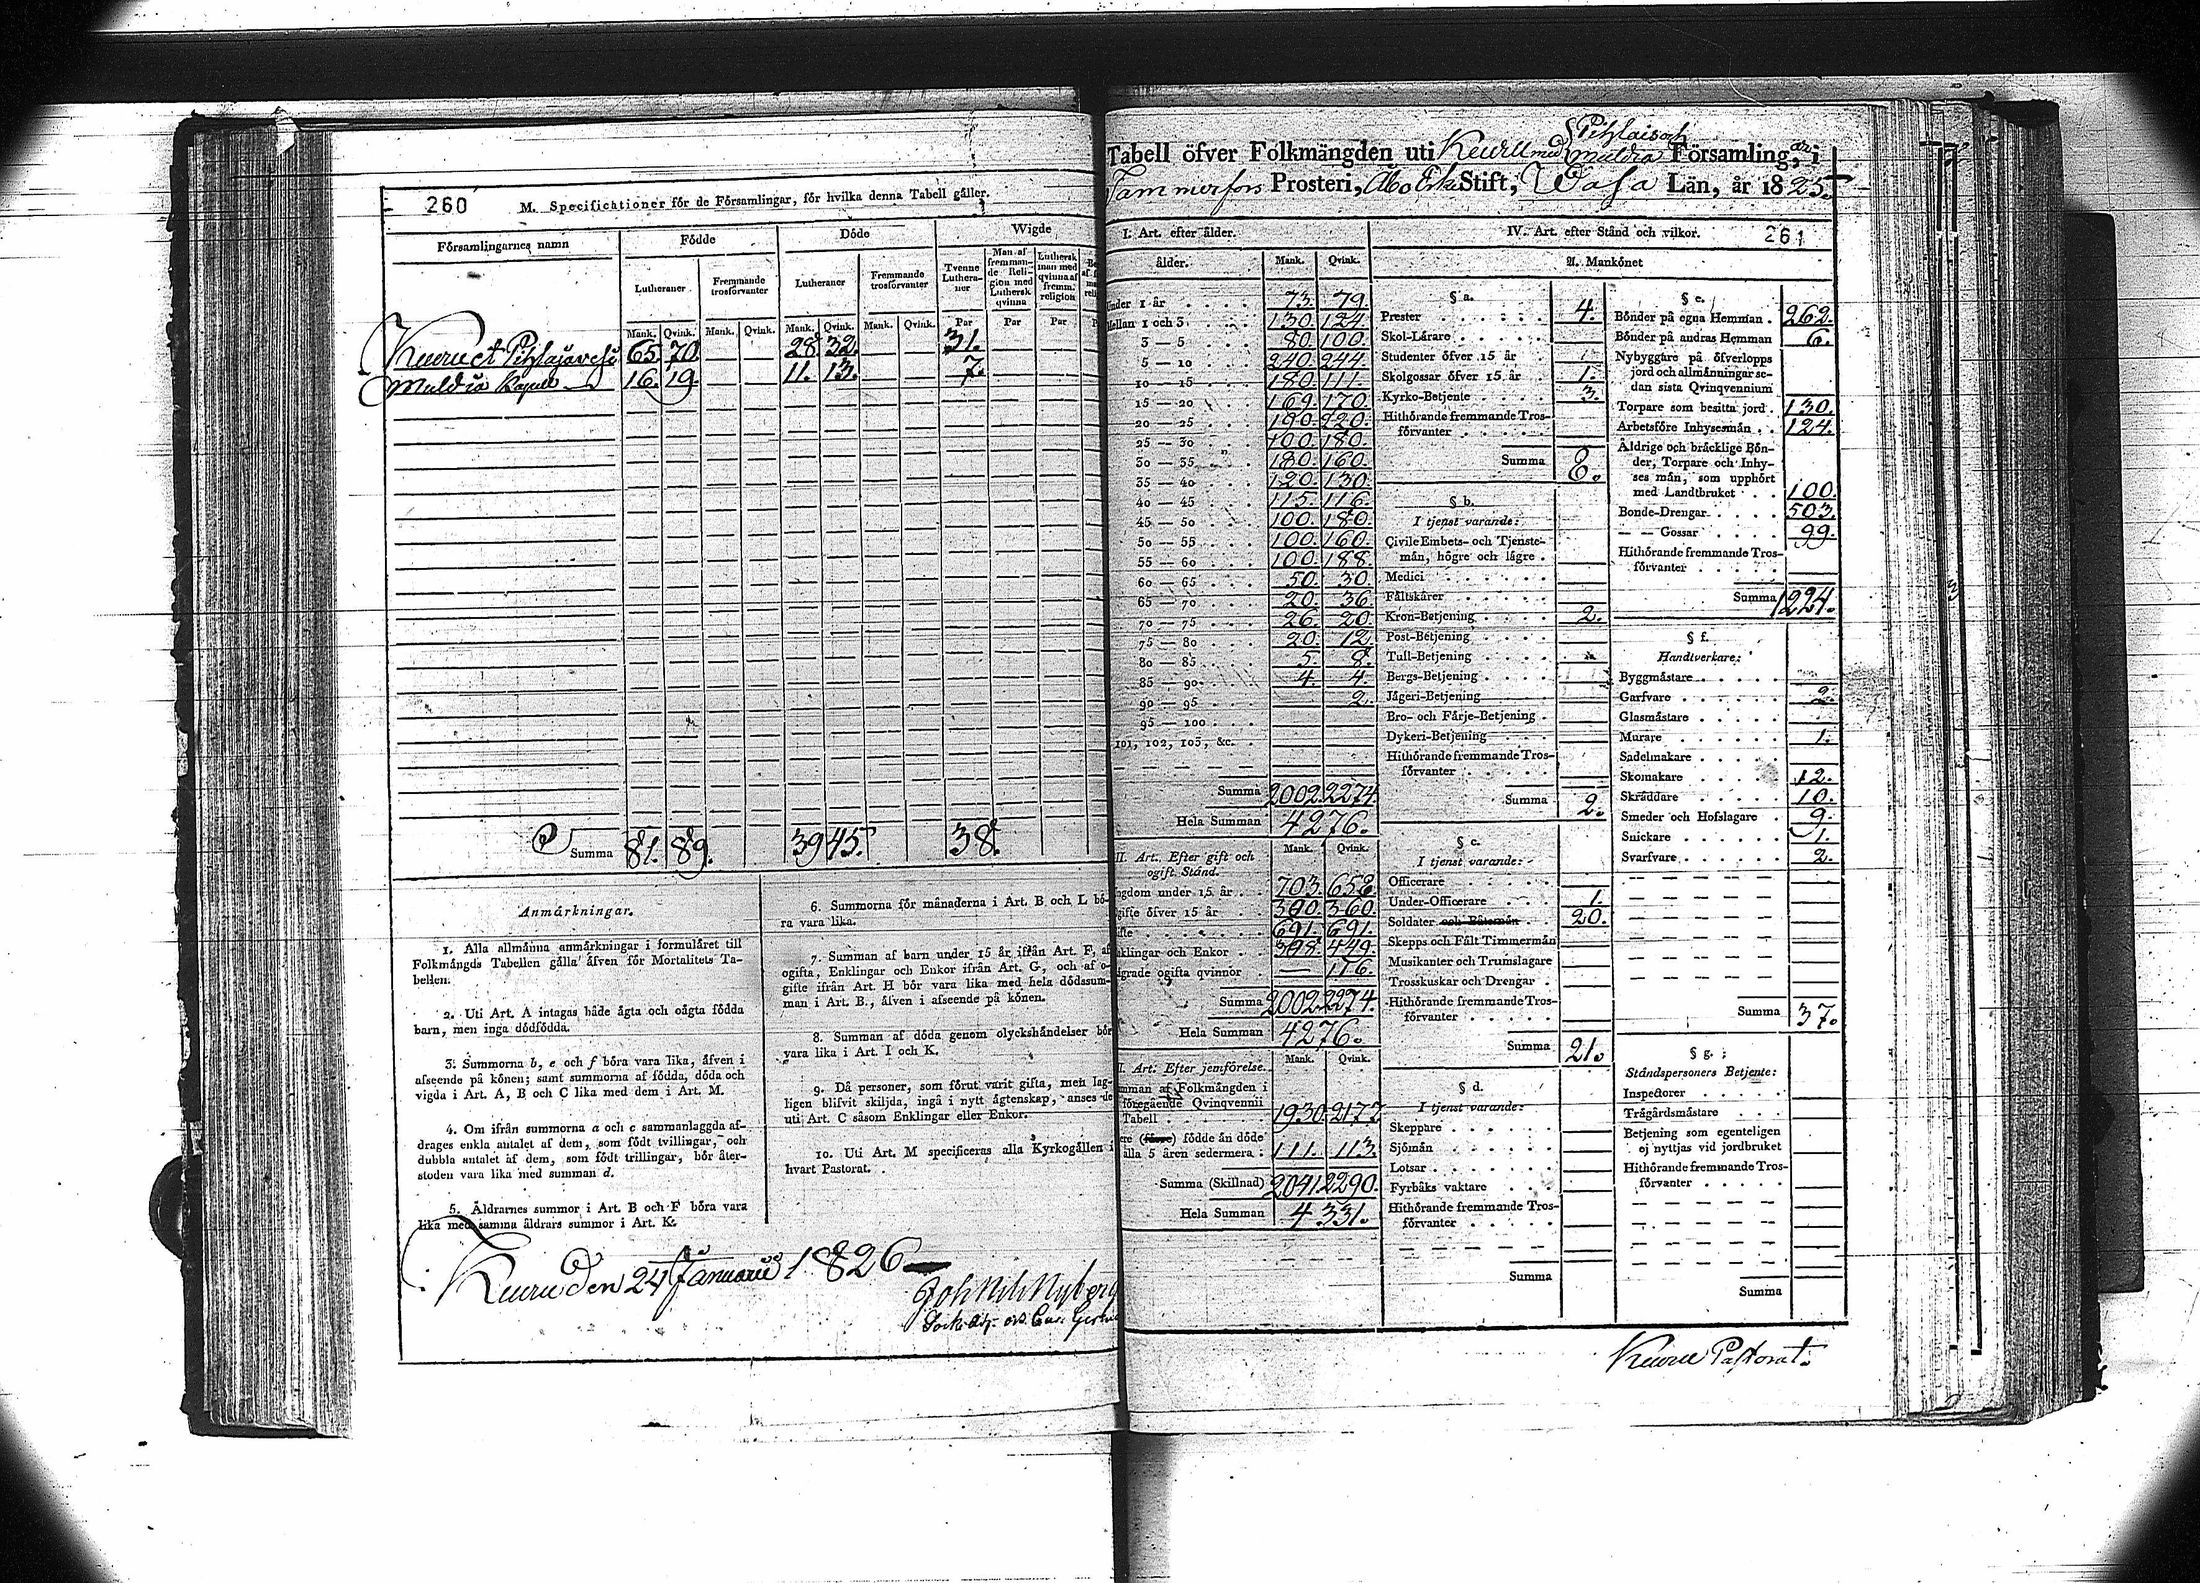 260
M. Specifichtioner för de Församlingar, för hvilka denna Tabell gäller.
Församlingarnes namn
Födde
Döde
Wigde
Lutheraner
Fremmande trosförvanter
Lutheraner
Fremmande trosförvanter
Tvenne Lutheraner
Man af fremmande Religion med Luthersk qvinna
Luthersk man med qvinna af fremm. religion
Mank. Qvink. Mank. Qvink. Mank. Qvink. Mank. Qvink. Par Par Par
Keuru et Pihlajavesi 65. 70 28 32. 31.
Muldia Kapell 16. 19. 11. 13. 7.
Summa 81. 89. 39 45. 38.
Anmärkningar.
1. Alla allmänna anmärkningar i formuläret till
Folkmängds Tabellen gälla äfven för Mortalitets Ta-
bellen.
2. Uti Art. A intagas både ägta och oägta födda
barn, men inga dödfödda.
3. Summorna b, e och f böra vara lika, äfven i
afseende på könen; samt summorna af födda, döda och
vigda i Art. A, B och C lika med dem i Art. M.
4. Om ifrån summorna a och c sammanlaggda af-
drages enkla antalet af dem, som födt tvillingar, och
dubbla antalet af dem, som födt trillingar, bör åter-
stoden vara lika med summan d.
5. Åldrarnes summor i Art. B och F böra vara
lika med samma åldrars summor i Art. K.
6. Summorna för månaderna i Art. B och L bö-
ra vara lika.
7. Summan af barn under 15 år ifrån Art. F, af
ogifta, Enklingar och Enkor ifrån Art. G, och af o-
gifte ifrån Art. H bör vara lika med hela dödssum-
man i Art. B., äfven i afseende på könen.
8. Summan af döda genom olyckshändelser bör
vara lika i Art. I och K.
9. Då personer, som förut varit gifta, men lag-
ligen blifvit skiljda, ingå i nytt ägtenskap, anses de
uti Art. C såsom Enklingar eller Enkor.
10. Uti Art. M specificeras alla Kyrkogällen i
hvart Pastorat.
Keuru den 24 Januarii 1826
Joh Nils Nyberg
Tabell öfver Folkmängden uti Keuru med Pihlais och Muldia Församling, i
Tammerfors Prosteri, Åbo Erke Stift, Wasa Län, år 1825.
I. Art. efter ålder.
ålder. Mank. Qvink.
Under 1 år 73. 79.
Mellan 1 och 3 130. 124
3 — 5 80. 100.
5 — 10 240. 244.
10 — 15 180. 111.
15 — 20 169. 170.
20 — 25 190. 220.
25 — 30 100. 180.
30 — 35 180. 160.
35 — 40 120. 130.
40 — 45 115. 116.
45 — 50 100. 180.
50 — 55 100. 160.
55 — 60 100. 188.
60 — 65 50. 30.
65 — 70 20. 36.
70 — 75 26. 20.
75 — 80 20. 12.
80 — 85 5. 8.
85 — 90 4. 4.
90 — 95 2.
95 — 100
101, 102, 103, &c.
Summa 2002. 2274.
Hela Summan 4276.
II. Art. Efter gift och
ogift Stånd. Mank. Qvink.
ngdom under 15 år 703. 658
gifte öfver 15 år 360.
fte 691. 691.
nklingar och Enkor 449.
grade ogifta qvinnor — 116.
Summa 2002. 2274.
Hela Summan 4276.
I. Art. Efter jemförelse. Mank. Qvink.
mman af Folkmängden i
föregående Qvinqvennii
Tabell 1930. 2177
ere (färre) födde än döde
alla 5 åren sedermera 111. 113.
Summa (Skillnad) 2041. 2290.
Hela Summan 4331.
IV. Art. efter Stånd och vilkor. 261
A. Mankönet
§ a.
Prester 4.
Skol-Lärare
Studenter öfver 15 år
Skolgossar öfver 15 år 1.
Kyrko-Betjente 3.
Hithörande fremmande Tros-
förvanter
Summa 8.
§ b.
I tjenst varande:
Civile Embets- och Tjenste-
män, högre och lägre
Medici
Fältskärer
Kron-Betjening 2.
Post-Betjening
Tull-Betjening
Bergs-Betjening
Jägeri-Betjening
Bro- och Färje-Betjening
Dykeri-Betjening
Hithörande fremmande Tros-
förvanter
Summa 2.
§ c.
I tjenst varande:
Officerare
Under-Officerare 1.
Soldater och Båtsmän 20.
Skepps och Fält Timmermän
Musikanter och Trumslagare
Trosskuskar och Drengar
Hithörande fremmande Tros-
förvanter
Summa 21.
§ d.
I tjenst varande:
Skeppare
Sjömän
Lotsar
Fyrbåks vaktare
Hithörande fremmande Tros-
förvanter
Summa
§ e.
Bönder på egna Hemman 262.
Bönder på andras Hemman 6.
Nybyggare på öfverlopps
jord och allmänningar se-
dan sista Qvinqvennium
Torpare som besitta jord 130.
Arbetsföre Inhysesmän 124.
Äldrige och bräcklige Bön-
der, Torpare och Inhy-
ses män, som upphört
med Landtbruket 100.
Bonde-Drengar 503.
— — Gossar 99.
Hithörande fremmande Tros-
förvanter
Summa 1224.
§ f.
Handtverkare:
Byggmästare
Garfvare 2.
Glasmästare
Murare 1.
Sadelmakare
Skomakare 12.
Skräddare 10.
Smeder och Hofslagare 9.
Snickare 1.
Svarfvare 2.
Summa 37.
§ g.
Ståndspersoners Betjente:
Inspector
Trägårdsmästare
Betjening som egenteligen
ej nyttjas vid jordbruket
Hithörande fremmande Tros-
förvanter
Summa
Keuru Pastorat.